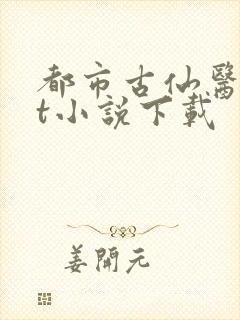 都市古仙醫
t小說下載
姜開元